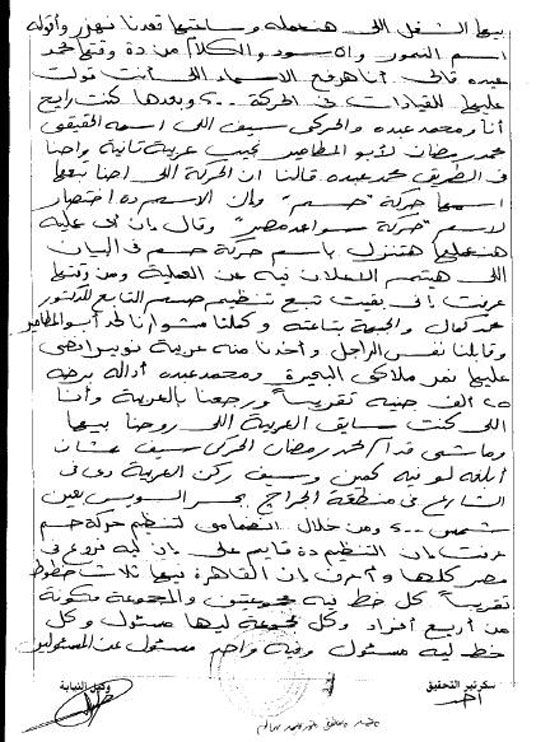 بيها الشغل اللي هنعمله وساعتها قعدنا نهزر وأقوله
اسم النمور والاسود والكلام من ده وقتها محمد
عبده قالي أنا هرفع الاسماء اللي أنت قولت
عليها للقيادات في الحركة ..؟ وبعدها كنت رايح
أنا ومحمد عبده والحركي سيف اللي اسمه الحقيقي
محمد رمضان لأبو المطامير نجيب عربية تانية واحنا
في الطريق محمد عبده قالنا ان الحركة اللي احنا تبعها
اسمها حركة "حسم" وان الاسم ده اختصار
لاسم "حركة سواعد مصر" وقال ان أي عملية
هنعملها هتنزل باسم حركة حسم في البيان
اللي هيتم الاعلان فيه عن العملية ومن وقتها
عرفت اني بقيت تبع تنظيم حسم التابع للدكتور
محمد كمال والجبهة بتاعته وكملنا مشوارنا لحد أبو المطامير
وقابلنا نفس الراجل وأخدنا منه عربية
عليها نمر ملاكي البحيرة ومحمد عبده أداله برضه
٢٥ ألف جنيه تقريباً ورجعنا بالعربية وأنا
اللي كنت سايق العربية اللي روحنا بيها
وماشي قدام محمد رمضان الحركي سيف عشان
أبلغه لو فيه كمين وسيف ركن العربية دي في
الشارع في منطقة الجراج بجسر السويس بعين
شمس ..؟ ومن خلال انضمامي لتنظيم حركة حسم
عرفت ان التنظيم ده قايم على ان ليه فروع في
مصر كلها وأعرف ان القاهرة فيها ثلاث خطوط
تقريباً كل خط فيه مجموعتين والمجموعة مكونة
من أربع أفراد وكل مجموعة ليها مسئول وكل
خط ليه مسئول وفيه واحد مسئول عن المسئولين
سكرتير التحقيق
وكيل النيابة